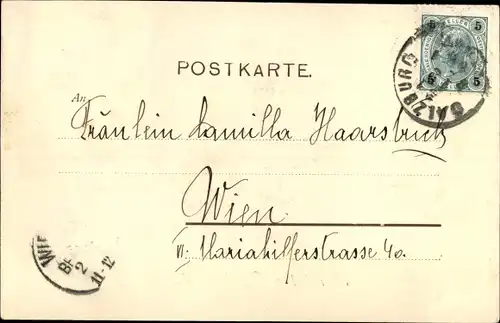 5 5
5 5
SALZBURG
POSTKARTE.
An
Fräulein Camilla Haarstrich
Wien
VI. Mariahilferstrasse 40.
WIE
2
11-12